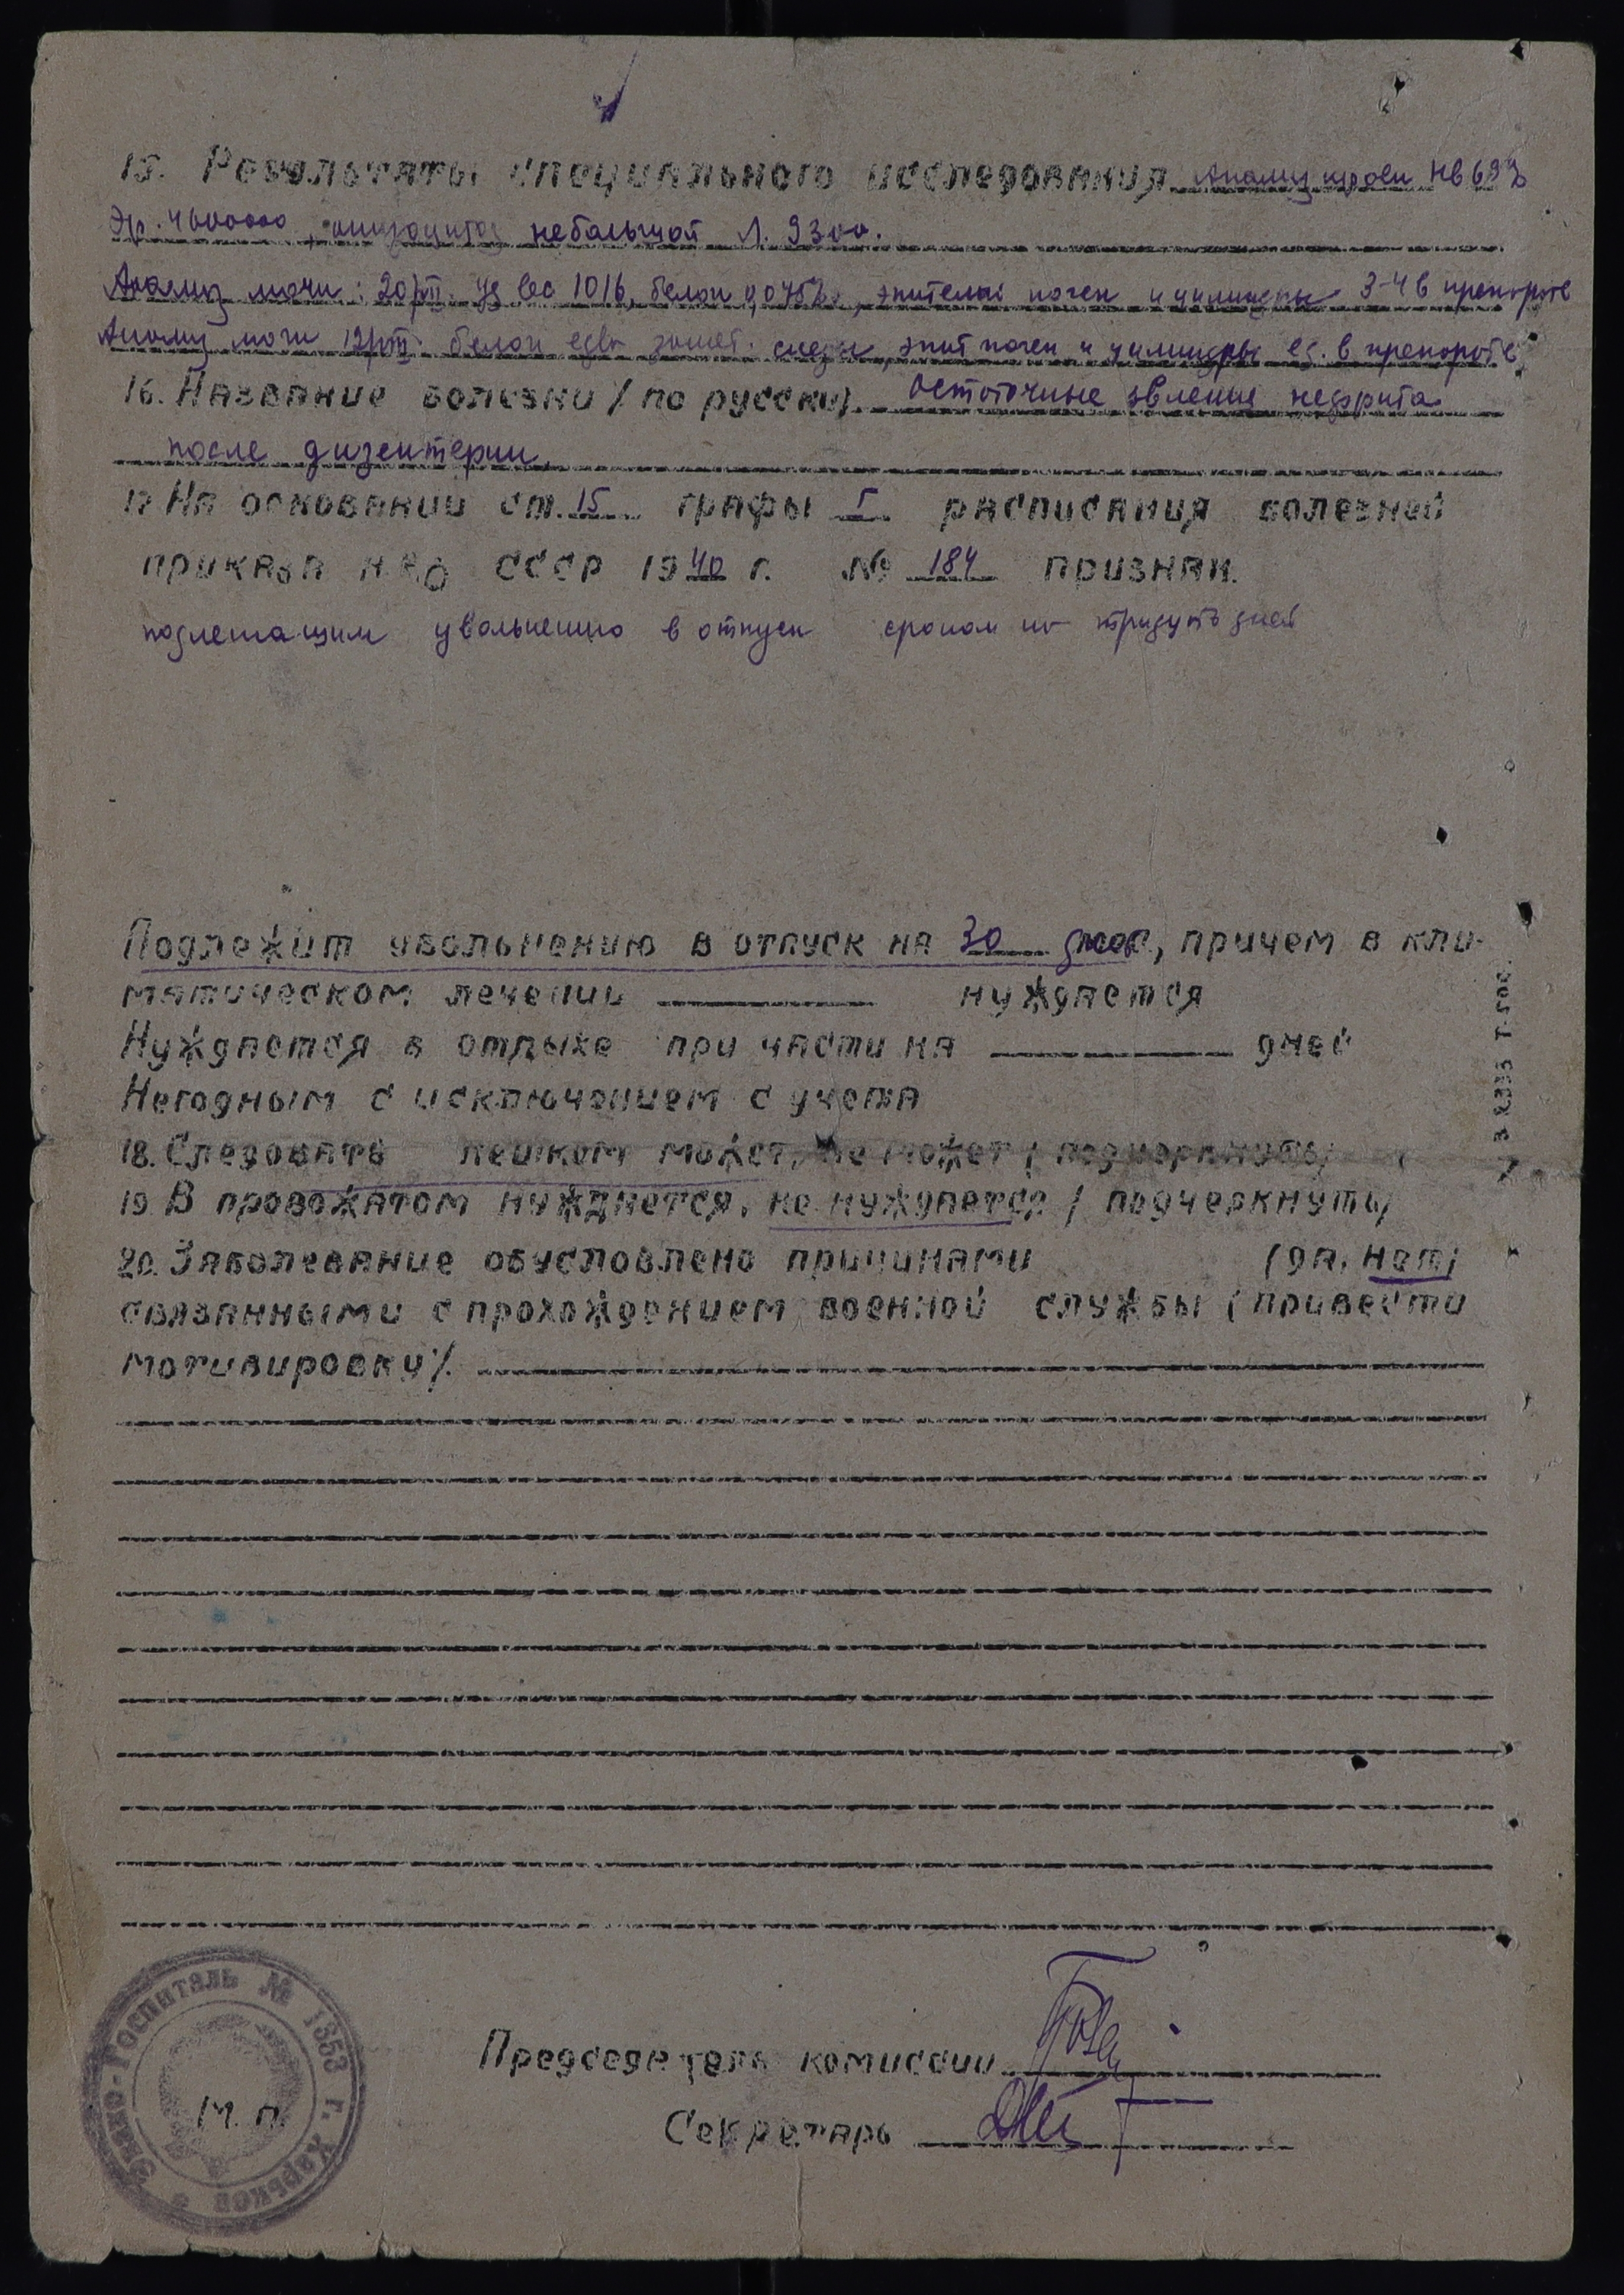 15. Результаты специального исследования Анализ крови Hb 69%
Эр. 4600000, анизоцитоз небольшой Л. 9300.
Анализ мочи: 20/VII. уд вес 1016, белок 0,045%, эпителий почек и цилиндры 3-4 в препарате
Анализ мочи 12/VIII белок едва замет. следы, эпит почек и цилиндры ед. в препарате
16. Название болезни / по русски/. Остаточные явления нефрита
после дизентерии.
17 На основании ст. 15 графы I расписания болезней
приказа НКО СССР 1940 г. № 184 признан.
подлежащим увольнению в отпуск сроком на тридцать дней
Подлежит увольнению в отпуск на 30 дней, причем в кли-
матическом лечении нуждается
Нуждается в отдыхе при части на дней
Негодным с исключением с учета
18. Следовать пешком может, не может / подчеркнуть/
19. В провожатом нуждается, не нуждается / подчеркнуть/
20. Заболевание обусловлено причинами /да, нет/
связанными с прохождением военной службы / привести
мотивировку/.
Председатель комиссии
Секретарь
М. П.
Эвако-Госпиталь № 1353 г. Харьков